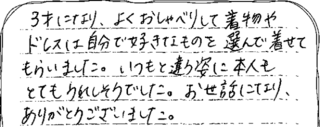 3才になり、よくおしゃべりして着物や
ドレスは自分で好きなものを選んで着せて
もらいました。いつもと違う姿に本人も
とてもうれしそうでした。お世話になり、
ありがとうございました。